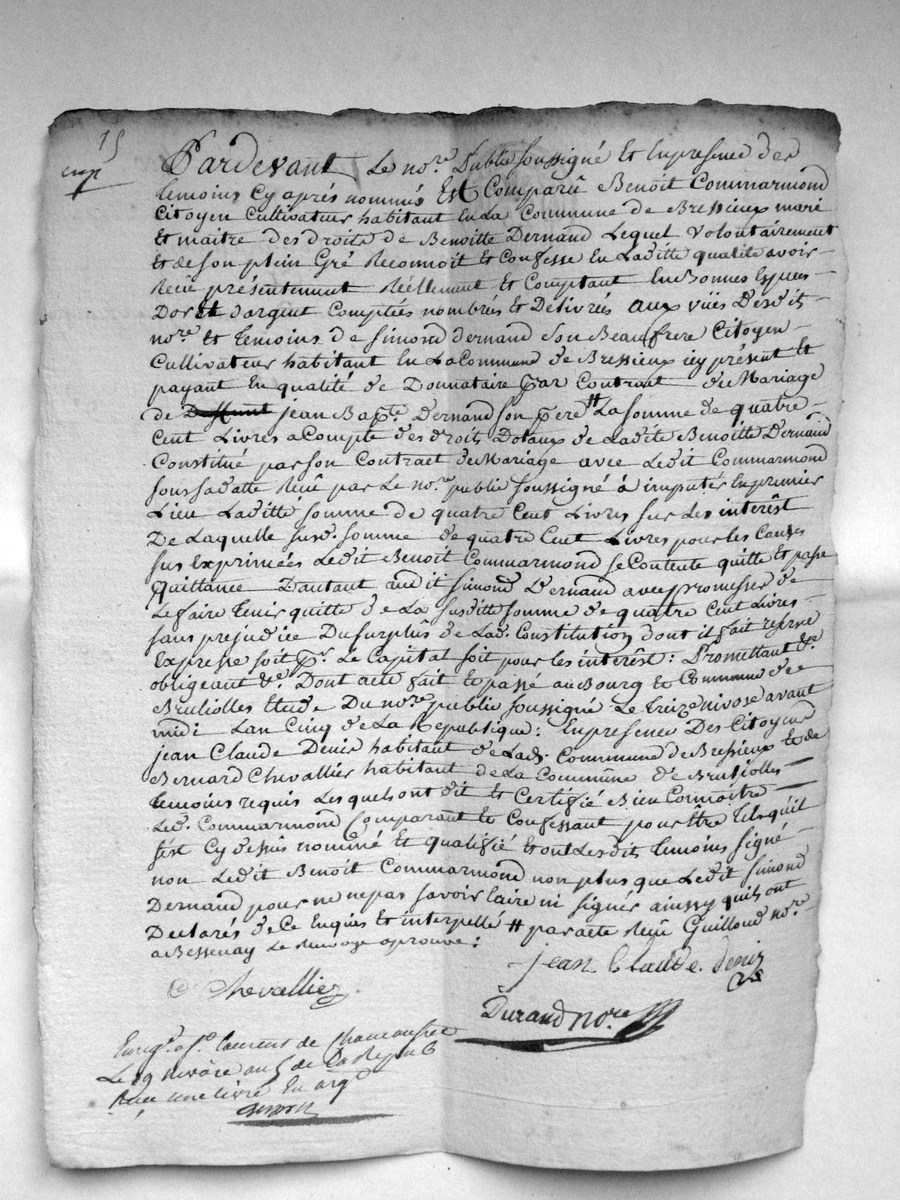 15
Pardevant Le no.re Public soussigné et En presence des
temoins cy aprés nommés Est Comparû Benoit Commarmond
Citoyen Cultivateur habitant En La Commune de Bressieux marié
et maitre des droits de Benoitte Dernand Lequel volontairement
et de son plein Gré Reconnoit et Confesse En Laditte qualité avoir
Reçû présentement Réellement et Comptant En bonnes Especes
Dor et Dargent Comptées nombrés et Délivrés aux vües Desdits
no.re et temoins de Simond dernand son Beaufrere Citoyen
Cultivateur habitant En La Commune de Bressieux icy présent et
payant En qualité de Donnataire par Contrat de Mariage
de jean Bap.te Dernand son pere # La somme de quatre
Cent Livres a Compte des droits Dotaux de Ladite Benoitte Dernand
Constitué par son Contract de Mariage avec Ledit Commarmond
sous sa datte Reçû par Le no.re public soussigné à imputér En premier
Lieu Laditte somme de quatre Cent Livres sur Les interêst
De Laquelle susd. somme de quatre Cent Livres pour les Causes
sus Exprimées Ledit Benoit Commarmond se Contente quitte et passe
Quittance D'autant audit Simond Dernand avec promesses de
Le faire tenir quitte de La susditte somme de quatre Cent Livres
sans prejudice Du surplûs de Lad. Constitution dont il fait reserve
Expresse soit p.r Le Capital soit pour les interêst : Promettant &.c
obligeant &.c Dont acte fait et passé au Bourg et Commune de
Brulliolles Etude Du no.re public soussigné Le treize nivose avant
midi Lan Cinq de La Republique : En presence Des Citoyens
jean Claude Denis habitant de Lad. Commune de Bressieux et de
Bernard Chevallier habitant de La Commune de Brulliolles
temoins requis Lesquels ont dit et Certifié Bien Connoitre
Led. Commarmond Comparant et Confessant pour Etre tel quil
s'est Cy dessûs nommé et qualifié et ont Lesdits temoins signé
non Ledit Benoit Commarmond non plus que Ledit Simond
Dernand pour ne pas savoir Ecrire ni signér ainssy quils ont
Declarés de Ce Enquis et interpellé # par acte Reçû Guilloud no.re
a Bessenay Le Renvoye aprouvé :
jean Claude denis
Chevallier
Durand no.re
Enrég.é a S.t Laurent de Chamousset
Le 19 nivôse an 5 de La Repub
Reçu une livre En arg.t